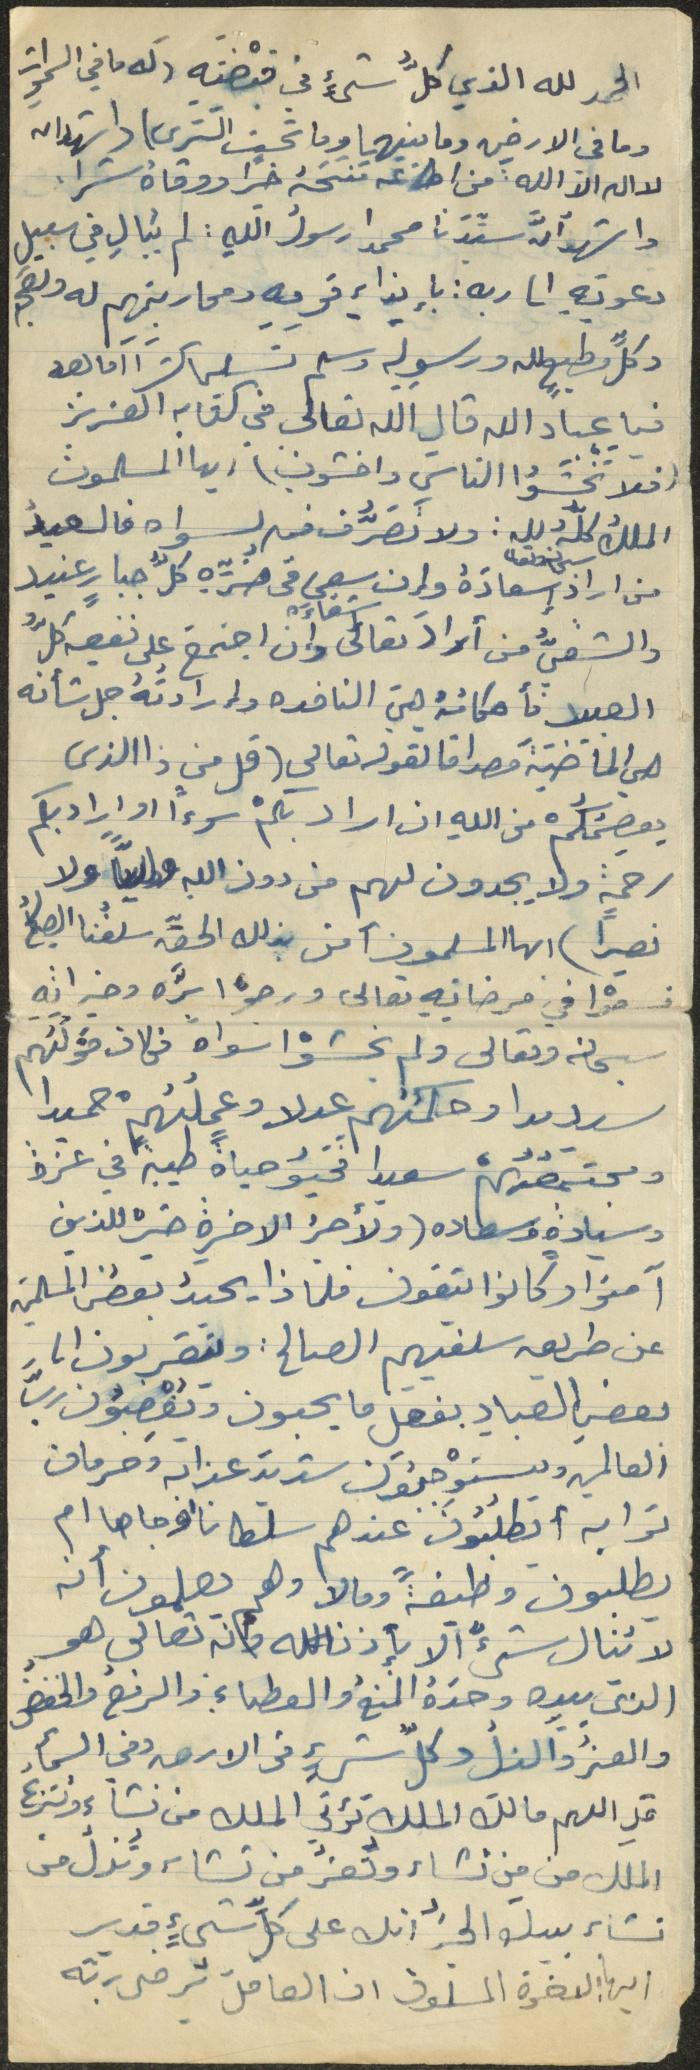 الحمد لله الذي كلُّ شيءٍ في قبْضتِهِ (له ما في السموات
وما في الارض وما بينهما وما تحت الثرى) واشهد ان
لا اله الا الله: من اطاعه منحَهُ خيرا ووقاهُ شرا.
واشهد انَّ سيّدَنا محمدا رسولُ اللهِ: لم يُبالِ في سبيلِ
دعوتِهِ الى ربه: بإيذاءِ قومِهِ ومحاربتِهم له
وكلِّ مطيعٍ لله ورسولِه وسلم تسليما كثيراً اما بعد
فيا عبادَ الله قال الله تعالى في كتابه العزيز
(فلا تخْشَوُا الناسَ واخشونِ) ايها المسلمون
الملكُ كلُّه لِلهِ: ولا تَصَرُّفَ فيه لسواه فالسعيدُ
من اراد سبحانه وتعالى إسعادَهُ وإن سعى في ضُرِّهِ كلُّ جبارٍ عنيد
والشقيُّ من أرادَ تعالى شقاءَهُ وإن اجتمع على نفعِه كلُّ
العبيد فأحكامُهُ هيَ النافذه وإرادتُهُ جل شأنه
هي الماضيَةُ مصداقا لقوله تعالى (قل من ذا الذي
يعصِمُكُمْ من اللهِ ان اراد بكُمْ سوءاً او اراد بكم
رحمةً ولا يجدون لهم من دون الله وليّاً ولا
نصيراً) ايها المسلمون آمن بذلك الحقِّ سلفُنا الصالحُ
فسعَوْا في مرضاتِهِ تعالى ورجوْا بِرَّه وخيراتِهِ
سبحانه وتعالى ولم يخشوْا سواهُ فكان قوْلُهُم
سديدا وحكمُهُم عدلا وعملُهُمْ حميدا
ومجتمعُهُمْ سعيدا فحَيُوا حياةً طيبةً في عزةٍ
وسيادةٍ وسعاده (ولأجرُ الاخرةِ خيرٌ للذين
آمنوا وكانوا يتقون فلماذا يحيدُ بعضُ المسلمين
عن طريقِ سلفِهم الصالح: ويتقربون الى
بعضِ العبادِ بفعلِ ما يحبون ويُغْضِبُون ربَّ
العالمين ويستوْجِبُونَ شديدَ عذابِه وحرمانَ
ثوابِه أيطلُبُونَ عندهم سلطانا او جاها ام
يطلبون وظيفةً ومالا وهم يعلمون أنه
لا يُنال شيءٌ الا بإذنِ الله فانه تعالى هو
الذي بيدِه وحدَهُ المنعُ والعطاءُ والرفعُ والخفضُ
والعزُّ والذلُّ وكلُّ شيءٍ في الارض وفي السماءِ
قل اللهم مالك الملك تؤتي الملك من تشاءُ وتنزعُ
الملك من من تشاء وتُعزُّ من تشاء وتُذلُّ من
تشاء بيدك الخيرُ انك على كلِّ شيءٍ قدير
ايها الاخوة المسلمون ان العاقلَ يُرضى ربَّه